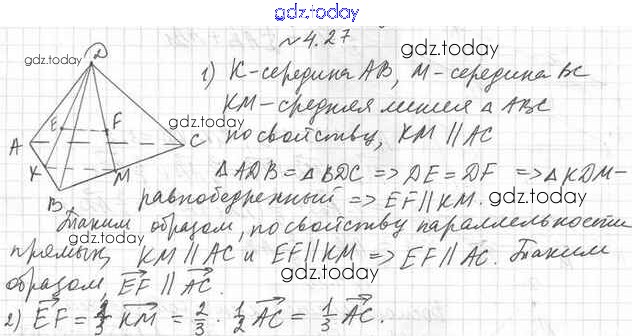 gdz.today
№4.27
gdz.today
gdz.today
D
1) K-середина AB, M-середина BC
KM-средняя линия △ ABC
по свойству, KM || AC
gdz.today
E F
A C
K M
B
△ADB = △BDC => DE = DF => △KDM-
равнобедренный => EF || KM.
gdz.today
Таким образом, по свойству параллельности
прямых, KM || AC и EF || KM => EF || AC. Таким
gdz.today
образом, EF || AC.
gdz.today
2) EF = 2/3 KM = 2/3 · 1/2 AC = 1/3 AC.